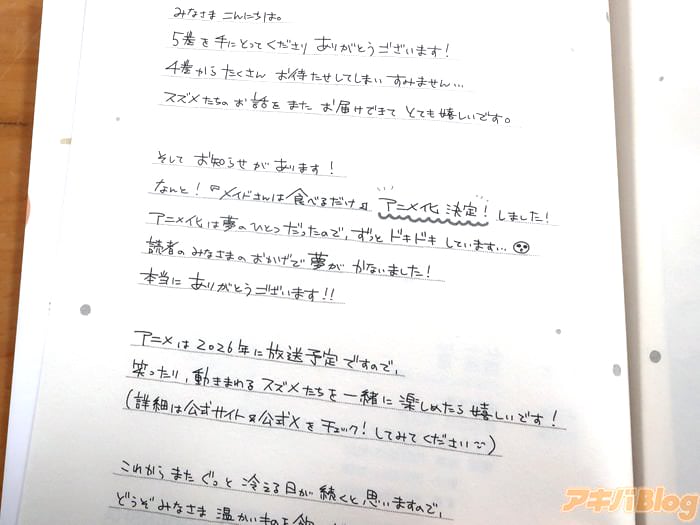 みなさま こんにちは。
5巻を手にとってくださり ありがとうございます！
4巻から たくさん お待たせしてしまい すみません…
スズメたちの お話を また お届けできて とても嬉しいです。
そして お知らせが あります！
なんと！『メイドさんは食べるだけ』 アニメ化 決定！ しました！
アニメ化は夢のひとつだったので、ずっと ドキドキ しています…
読者の みなさまの おかげで 夢が かないました！
本当に ありがとうございます！！
アニメは 2026年に 放送予定 ですので、
笑ったり、動きまわる スズメたちを 一緒に 楽しめたら 嬉しいです！
（詳細は 公式サイトや 公式X を チェック！してみてください）
これから また ぐっと 冷える日が 続くと 思いますので、
どうぞ みなさま 温かいものを 飲
アキバBlog